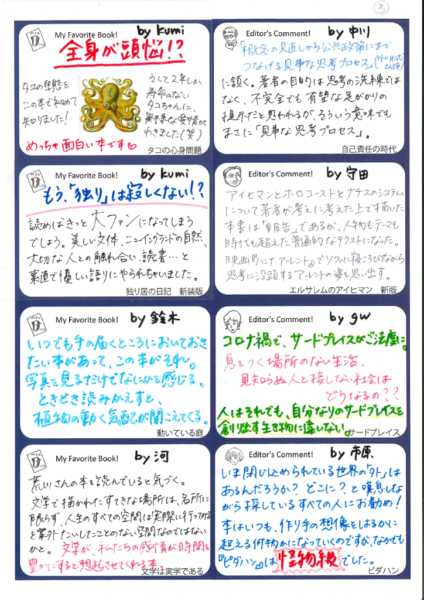 ②
My Favorite Book! by kumi
全身が頭悩!?
タコの生態を
この本で初めて
知りました!
そして2年しか
寿命のない
タコちゃんに、
わきました(笑)
めっちゃ面白い本です
タコの心身問題
Editor's Comment! by 中川
「概念の見直しから公共政策にまで
つなげる見事な思考プロセス。」
に頷く。著者の目的は思考の洗練では
なく、不完全でも有望な足がかりの
提示だと思われるが、そういう意味でも
まさに「見事な思考プロセス」。
自己責任の時代
My Favorite Book! by kumi
もう、「独り」は寂しくない!?
読めばきっと大ファンになってしまう
でしょう。美しい文体、ニューイングランドの自然、
大切な人との触れ合い、読書…と
素直で優しい語りにやられちゃいました。
独り居の日記 新装版
Editor's Comment! by 守田
アイヒマンとホロコーストとナチスのシステム
について著者が考えに考えた上で描いた
本書は「報告」であるが、人物もテーマも
時代も超えた普遍的なテクストになった。
映画『ハンナ・アーレント』でソファに寝ころびながら
思考に没頭するアーレントの姿を思い出す。
エルサレムのアイヒマン 新版
My Favorite Book! by 鈴木
いつでも手の届くところにおいておき
たい本があって、この本がそれ。
写真を見るだけでなにかを感じる。
ときどき読みかえすと、
植物の動く気配が聞こえてくる。
動いている庭
Editor's Comment! by gw
コロナ禍で、サードプレイスがご法度に。
息をつく場所のない生活、
見知らぬ人と接しない社会は
どうなるの??
人はそれでも、自分なりのサードプレイスを
創り出す生き物に違いない。
サードプレイス
My Favorite Book! by 河
荒川さんの本を読んでいると気づく。
文学で描かれたすてきな場所は、名所に
限らず、人生のすべての空間は実際に行って
ないかと。文学が、私たちの感情が時間を
豊かにすると想起させてくれる本。
文学は実学である
Editor's Comment! by 市原
いま閉じ込められている世界の「外」は
あるんだろうか? どこに? と嘆息しな
がら探しているすべての人にお勧め!
本はいつも、作り手の想像をはるかに
超える何物かになっていくのですが、なかでも
『ピダハン』は怪物級でした。
ピダハン